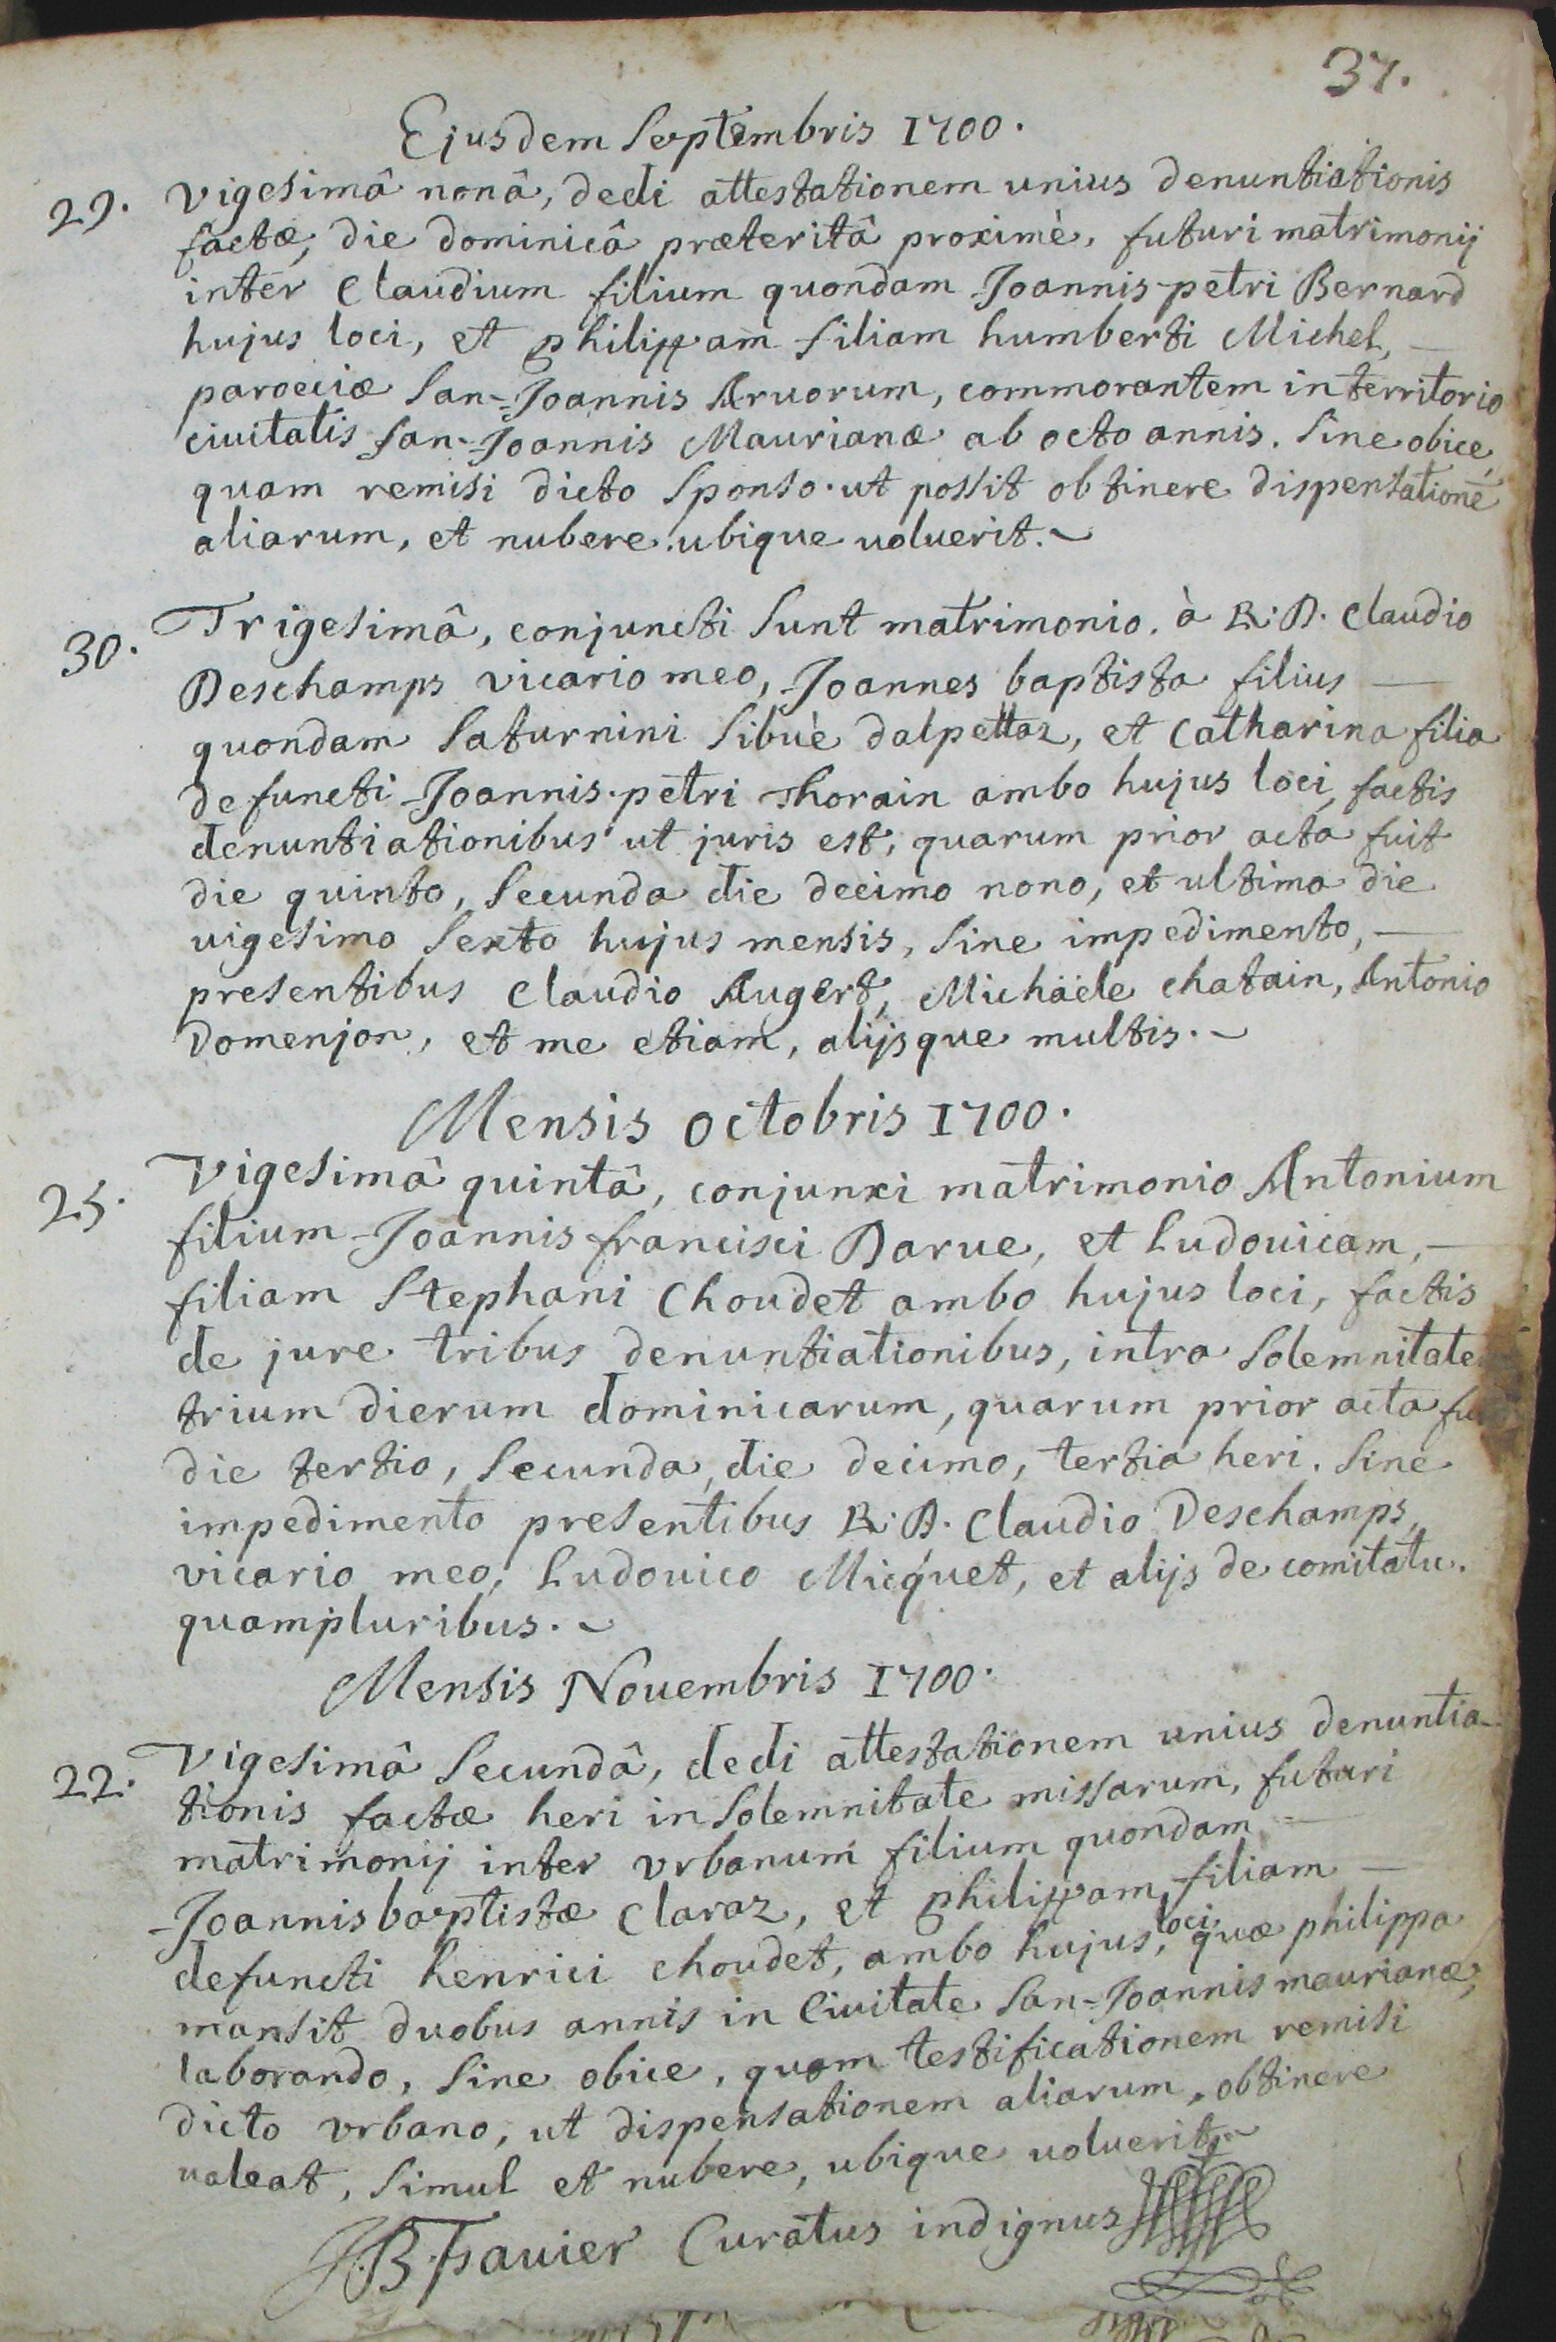 37.
Ejusdem Septembris 1700.
29. Vigesimâ nonâ, dedi attestationem unius denuntiationis
factæ, die dominicâ præteritâ proximè, futuri matrimonij
inter Claudium filium quondam Joannis-petri Bernard
hujus loci, et philippam filiam humberti Michel, —
parocciæ San-Joannis Aruorum, commorantem in territorio
ciuitatis San-Joannis Maurianæ ab octo annis. Sine obice,
quam remisi dicto Sponso. ut possit obtinere dispensationē
aliarum, et nubere ubique uoluerit. ~
30. Trigesimâ, conjuncti Sunt matrimonio. à R: D. Claudio
Deschamps vicario meo, Joannes baptista filius —
quondam Saturnini Sibuè dalpettaz, et Catharina filia
defuncti Joannis-petri Thorain ambo hujus loci, factis
denuntiationibus ut juris est, quarum prior acta fuit
die quinto, Secunda die decimo nono, et ultima die
uigesimo Sexto hujus mensis, Sine impedimento, —
presentibus Claudio Augert, Michäele chatain, Antonio
Domenjon, et me etiam, alijsque multis. ~
Mensis octobris 1700.
25. Vigesimâ quintâ, conjunxi matrimonio Antonium
filium Joannis francisci Darue, et Ludouicam, —
filiam Stephani Choudet ambo hujus loci, factis
de jure tribus denuntiationibus, intra Solemnitate
trium dierum dominicarum, quarum prior acta fu
die tertio, Secunda, die decimo, tertia heri. Sine
impedimento presentibus R: D. Claudio Deschamps,
vicario meo, Ludouico Micquet, et alijs de comitatu.
quampluribus. ~
Mensis Nouembris 1700.
22. Vigesimâ Secundâ, dedi attestationem unius denuntia-
tionis factæ heri in Solemnitate missarum, futuri
matrimonij inter vrbanum filium quondam —
Joannis baptistæ Claraz, et philippam, filiam —
defuncti henrici choudet, ambo hujus, loci quæ philippa
mansit duobus annis in Ciuitate San-Joannis maurianæ,
laborando, Sine obice, quam testificationem remisi
dicto vrbano, ut dispensationem aliarum, obtinere
ualeat, Simul et nubere, ubique uoluerit. ~
J. B. Favier Curatus indignus